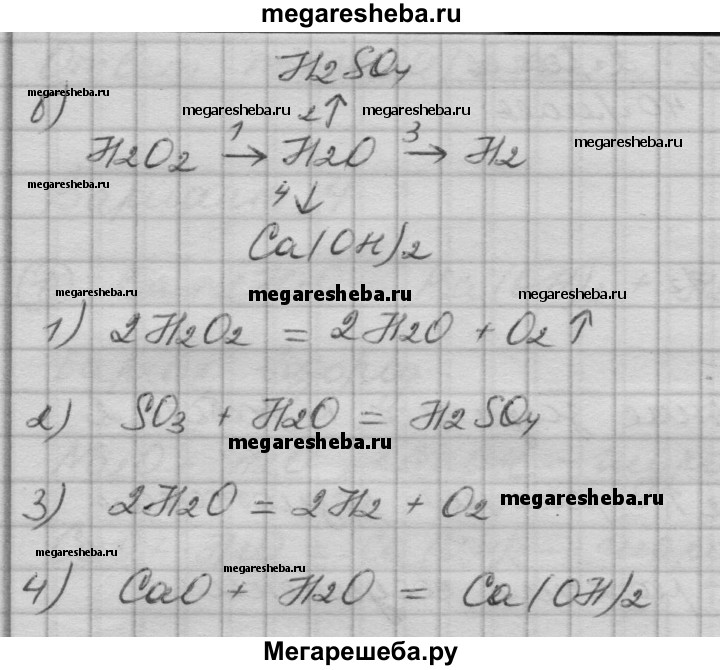 megaresheba.ru
H2SO4
megaresheba.ru
в)
megaresheba.ru 2↑ megaresheba.ru
H2O2 1→ H2O 3→ H2 megaresheba.ru
megaresheba.ru
4↓
Ca(OH)2
megaresheba.ru megaresheba.ru megaresheba.ru
1) 2H2O2 = 2H2O + O2↑
2) SO3 + H2O = H2SO4
megaresheba.ru
3) 2H2O = 2H2 + O2 megaresheba.ru
megaresheba.ru
megaresheba.ru
4) CaO + H2O = Ca(OH)2
Мегарешеба.ру